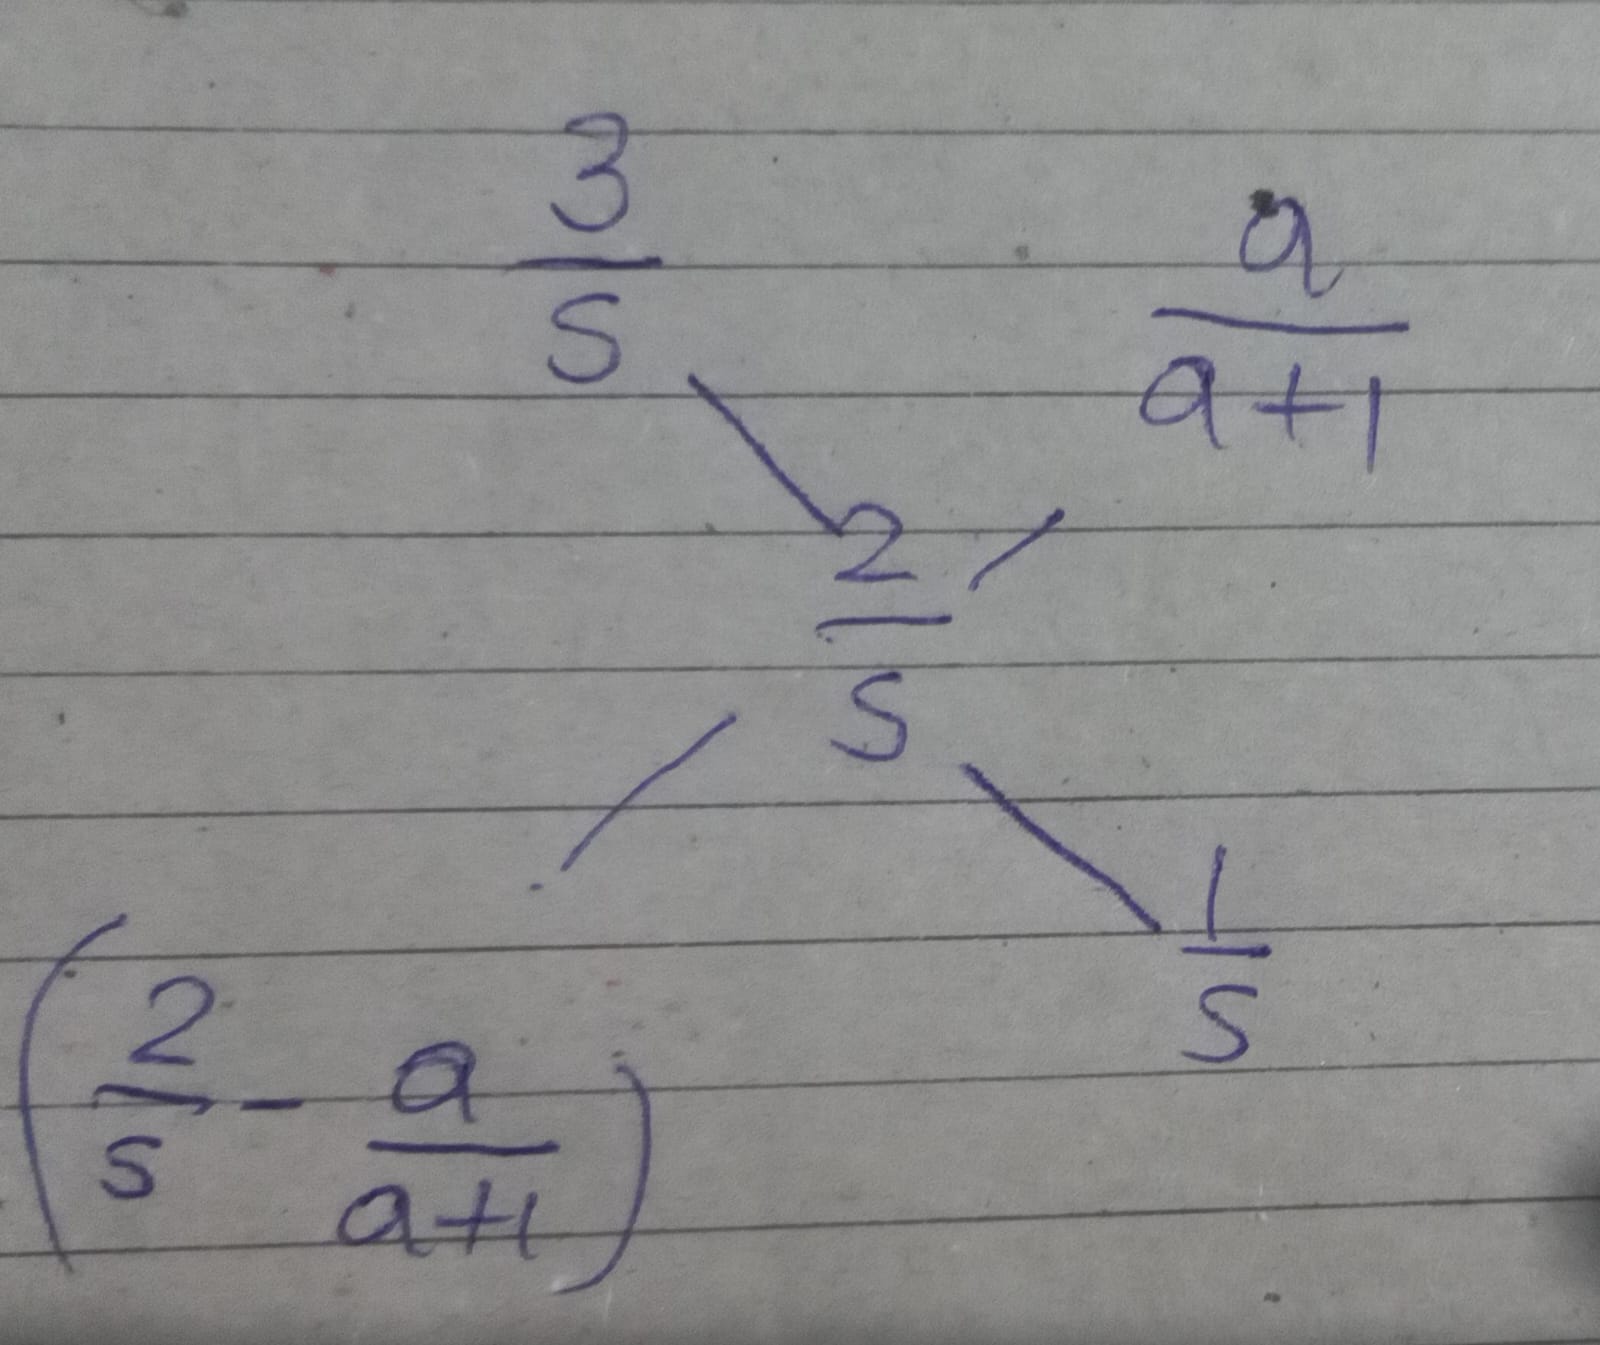 3/5    a/(a+1)
2/5
(2/5 - a/(a+1))    1/5